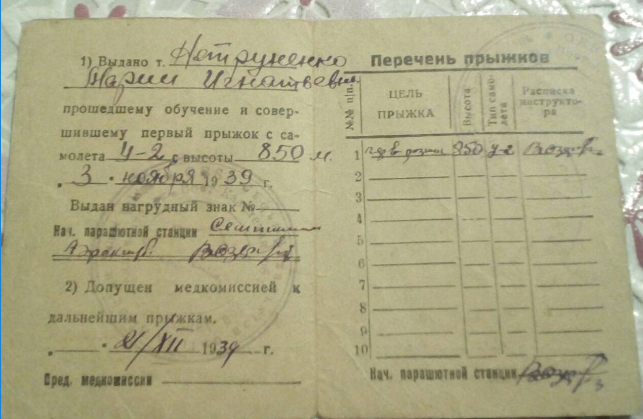 1) Выдано т. Петруненко
Марии Игнатьевне
прошедшему обучение и совер-
шившему первый прыжок с са-
молета У-2 с высоты 850 м.
„ 3 “ ноября 1939 г.
Выдан нагрудный знак №
Нач. парашютной станции
Аэроклуб.
2) Допущен медкомиссией к
дальнейшим прыжкам.
„ “ 21/XII 1939 г.
Пред. медкомиссии
Перечень прыжков
№№ п/п. ЦЕЛЬ ПРЫЖКА Высота Тип само-лета Расписка инструкто-ра
1 850 У-2
2
3
4
5
6
7
8
9
10
Нач. парашютной станции